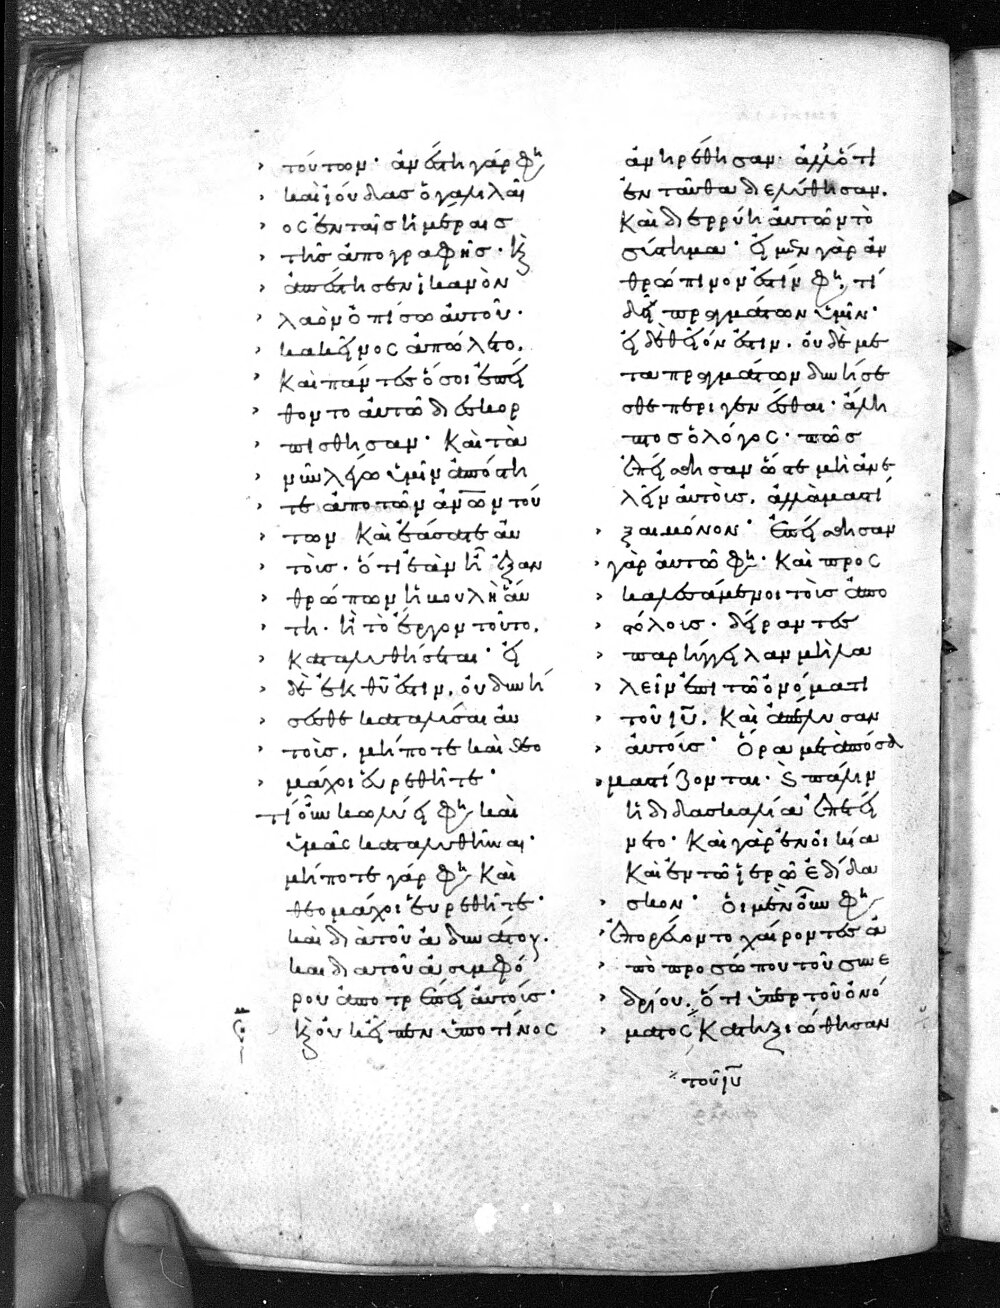 τούτων· ἀνέστη γάρ φη
καὶ ἰούδας ὁ γαλιλαῖ
ος ἐν ταῖς ἡμέραις
τῆς ἀπογραφῆς· κ
ἀπέστησεν ἱκανὸν
λαὸν ὀπίσω αὐτοῦ·
κακεῖνος ἀπώλετο,
καὶ πάντες ὅσοι ἐπεί
θοντο αὐτῶ διεσκορ
πίσθησαν· καὶ τὰ
νῦν λέγω ὑμῖν ἀπόστη
τε ἀπο τῶν ἀν̅ω̅ν τού
των καὶ ἐάσατε αὐ
τοὺς· ὅτι ἐὰν ἦ ἐξ αν
θρώπων ἡ βουλὴ αὕ
τη· ἢ τὸ ἔργον τοῦτο,
καταλυθήσεται· εἰ
δὲ ἐκ θ̅υ̅ ἐστιν, οὐ δυνή
σεσθε καταλῦσαι αὐ
τοὺς, μήποτε καὶ θεο
μάχοι εὑρεθῆτε·
τί οὖν κωλύει φη καὶ
ὑμᾶς καταλυθῆναι·
μήποτε γάρ φη καὶ
θεομάχοι εὑρεθῆτε·
καὶ διὰ τοῦ ἀδυνάτου,
καὶ διὰ τοῦ ἀσυμφό
ρου ἀποτρέπει αὐτούς·
κ οὐκ εἶπεν ὑπο τίνος
ἀνηρέθησαν· ἀλλ' ὅτι
ἐνταῦθα διελύθησαν,
καὶ διερρύη αὐτῶν τὸ
σύστημα· εἰ μὲν γὰρ ἀν
θρώπινον ἐστίν φη, τί
δεῖ πραγμάτων ὑμῖν·
εἰ δὲ θεῖόν ἐστιν, οὐδὲ με
τα πραγμάτων δυνήσε
σθε περιγενέσθαι· ἄλη
πτος ὁ λόγος· πῶς
ἐπείσθησαν ὥστε μὴ ἀνε
λεῖν αὐτοὺς, ἀλλὰ μαστί
ξαι μόνον· ἐπείσθησαν
γὰρ αὐτῶ φη· καὶ προς
καλεσάμενοι τοὺς ἀπο
στόλους· δείραντες
παρήγγειλαν μὴ λα
λεῖν ἐπι τῶ ὀνόματι
τοῦ ι̅υ̅, καὶ ἀπέλυσαν
αὐτούς· ὅρα μετὰ πόσα
μαστίζονται· κ πάλιν
ἡ διδασκαλία ἐπετεί
νετο· καὶ γὰρ ἐν οἰκία
καὶ ἐν τῶ ἱερῶ ἐδίδα
σκον· οἱ μὲν οὖν φη
ἐπορεύοντο χαίροντες ἀ
πὸ προσώπου τοῦ συνε
δρίου, ὅτι ὑπὲρ τοῦ ὀνό
ματος κατηξιώθησαν
τοῦ ι̅υ̅